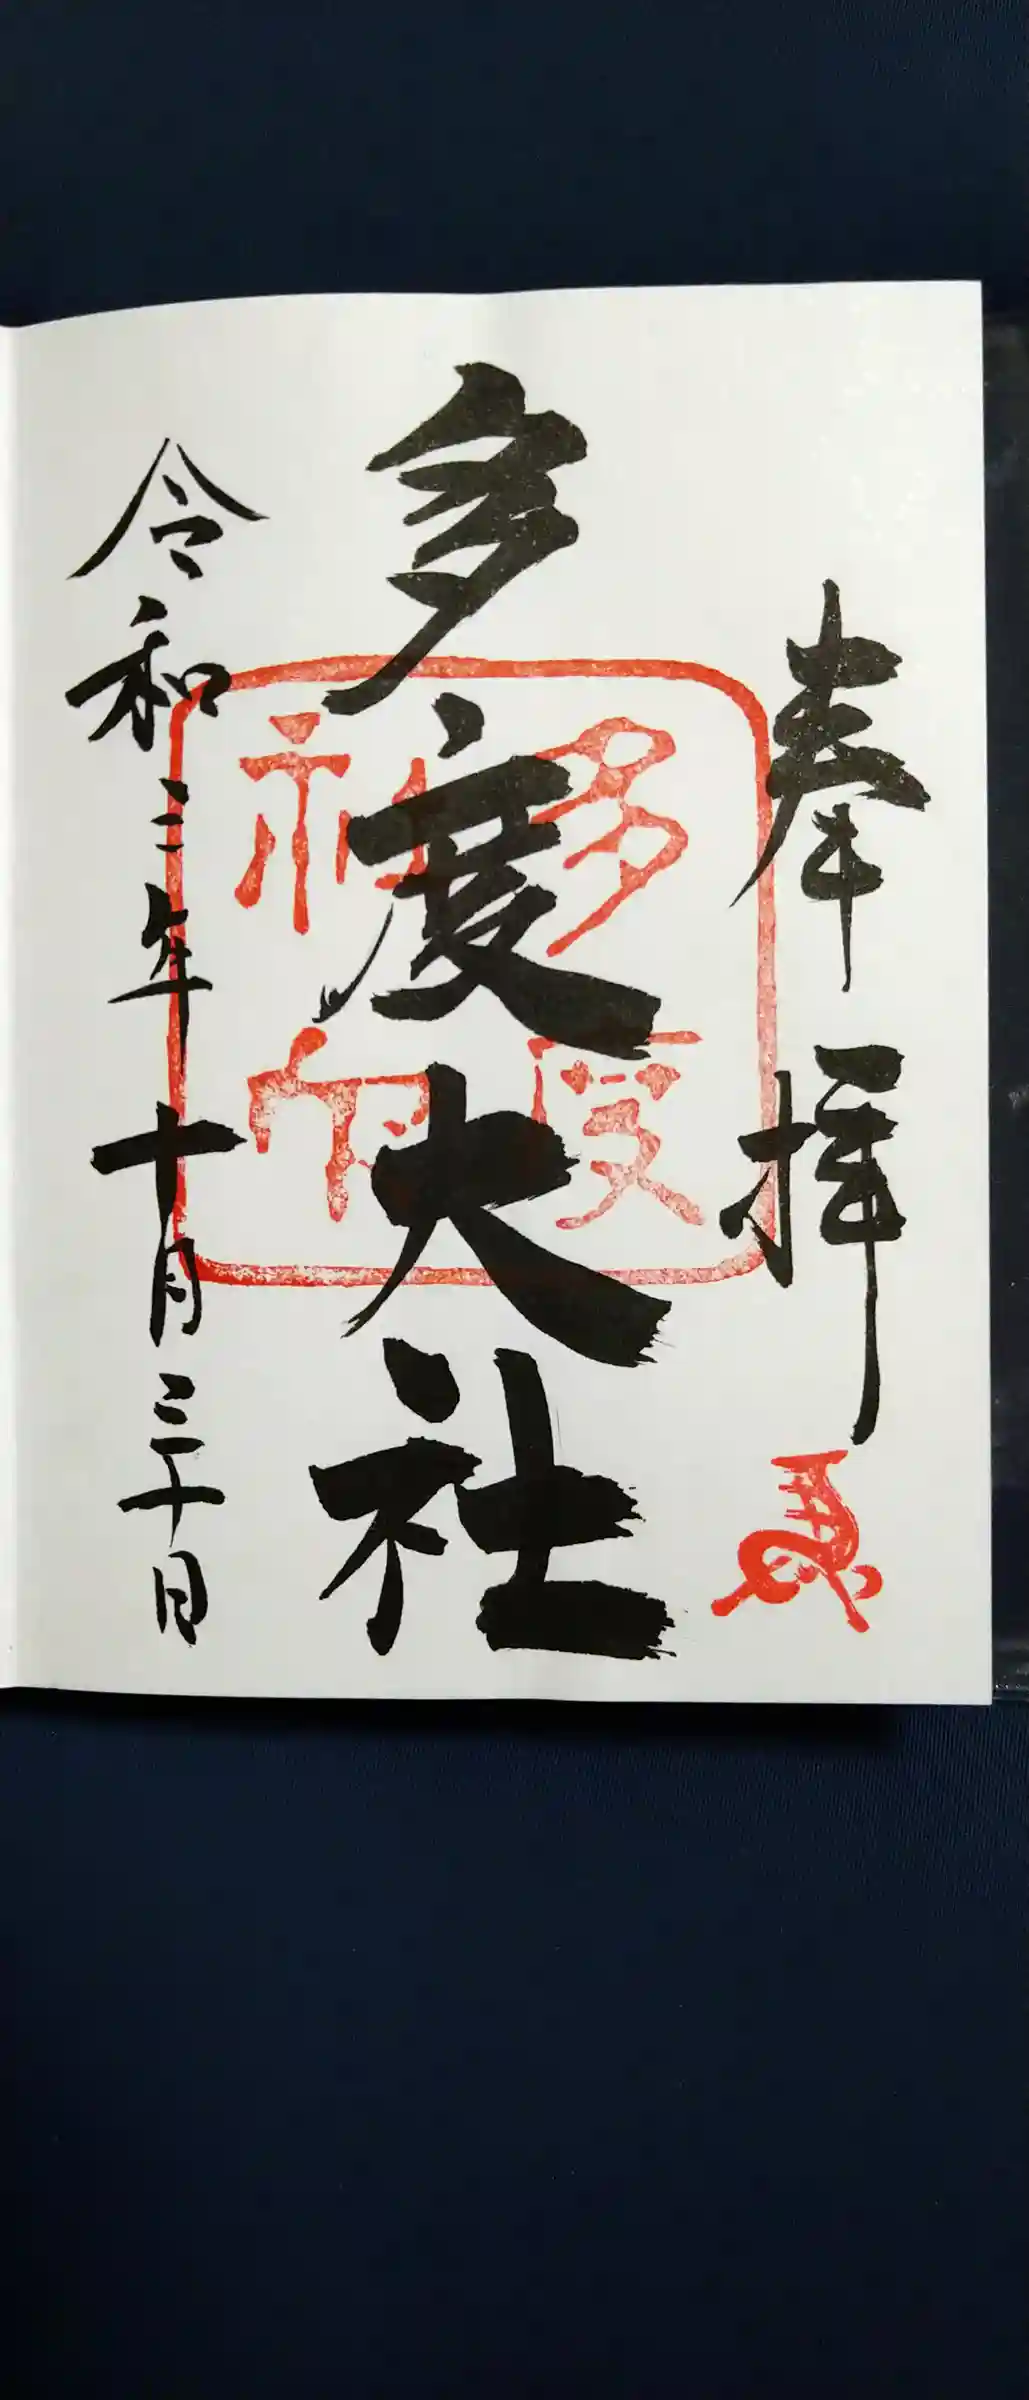 奉拝
多度大社
多度神印
令和二年十月三十日